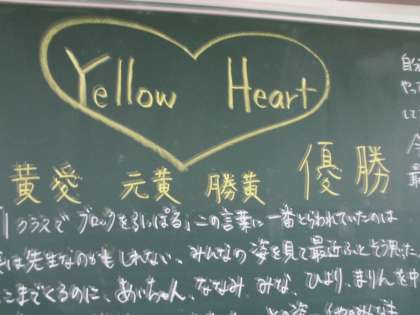 Yellow Heart
黄愛 元黄 勝黄 優勝
「1クラスでブロックを引っぱる」この言葉に一番とらわれていたのは
は先生なのかもしれない。みんなの姿を見て最近ふと
こまでくるのに、あいちゃん、ななみ、みな、ひより、まりんを中